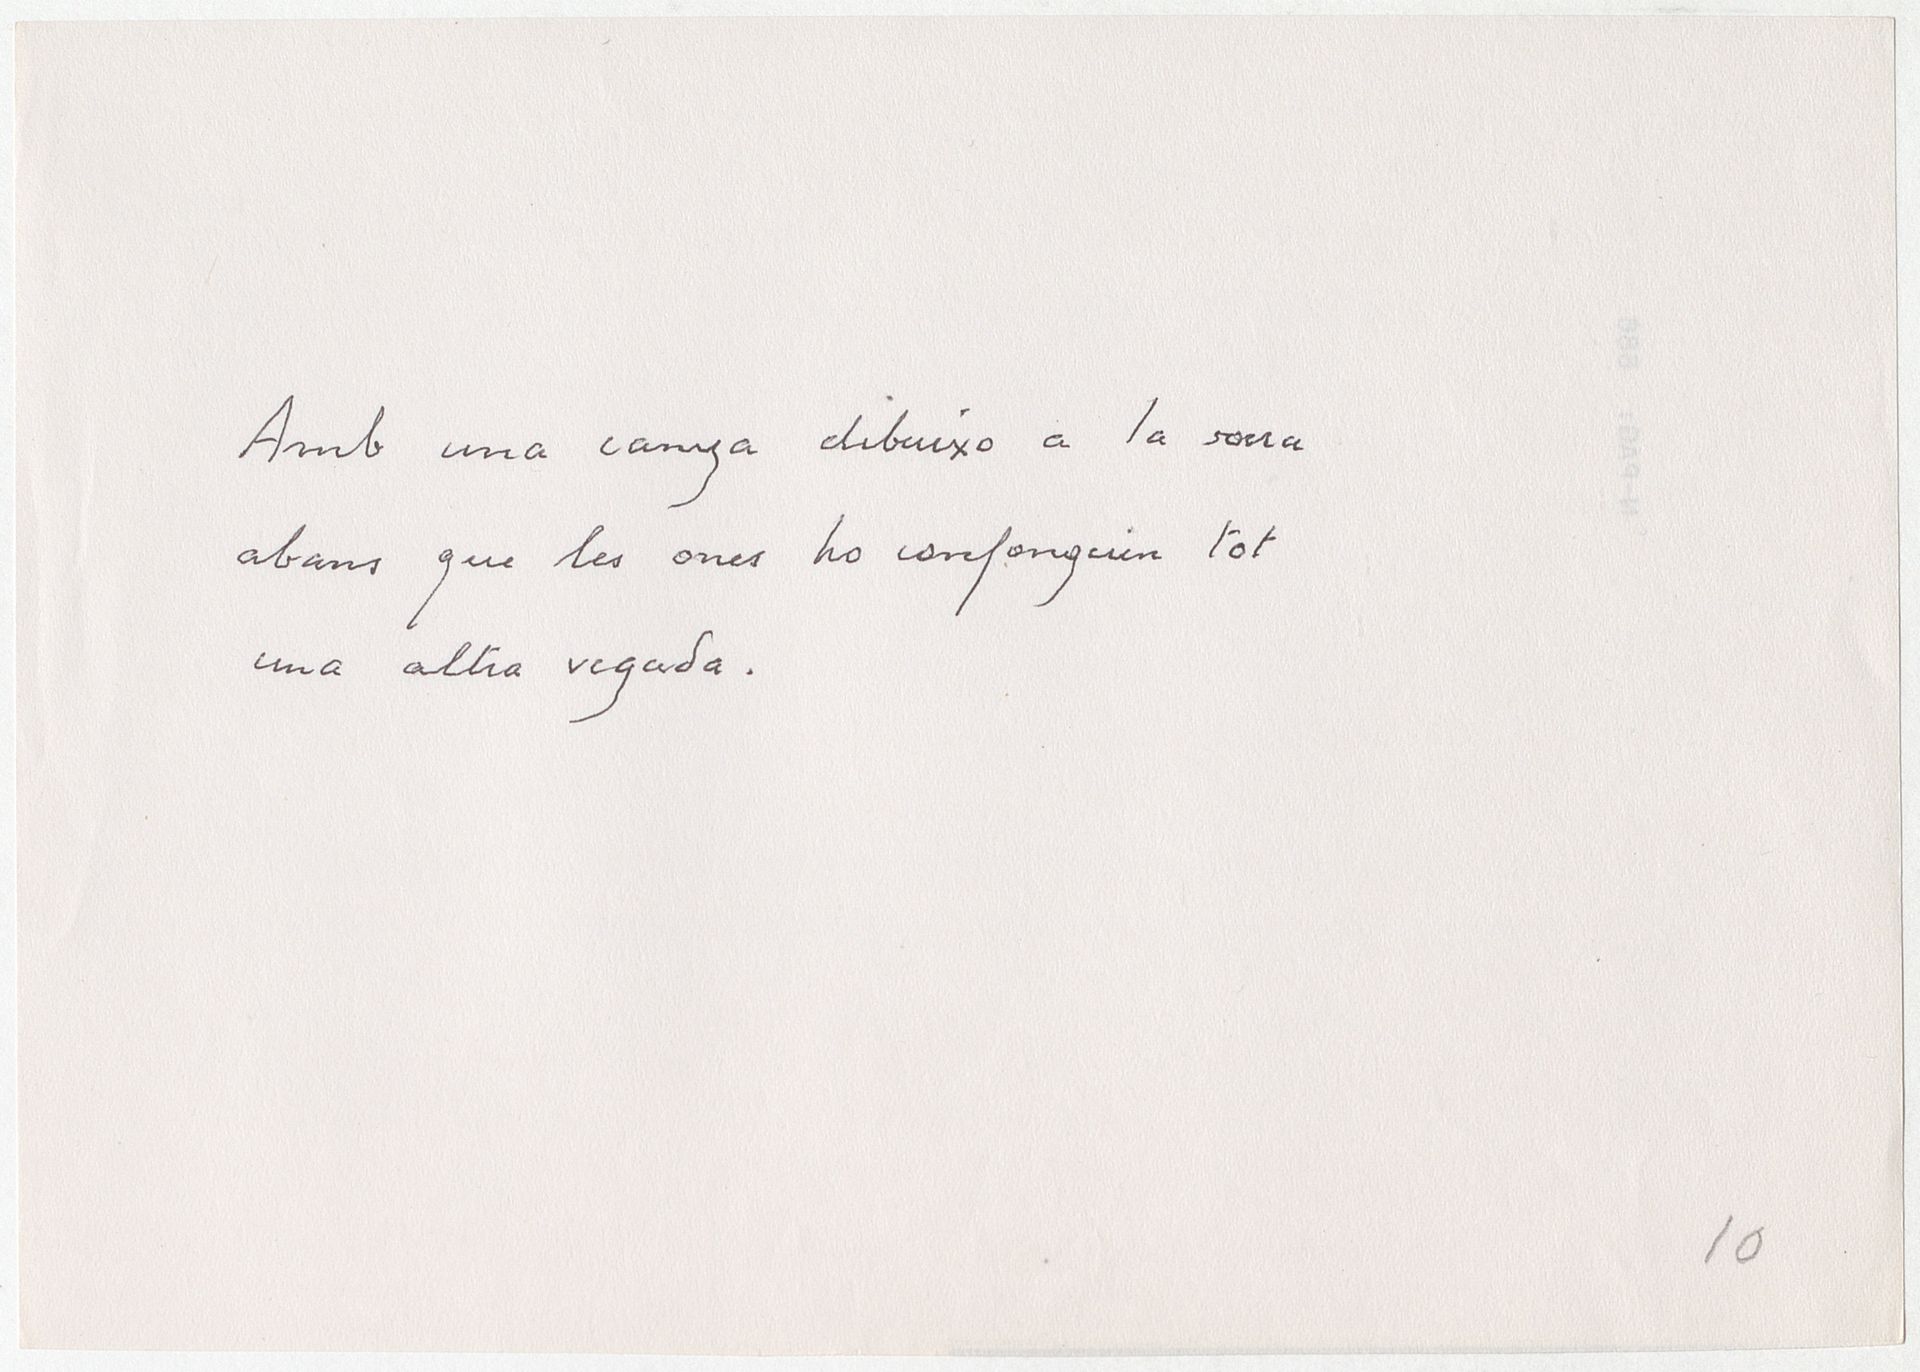 Amb una canya dibuixo a la sorra
abans que les ones ho confonguin tot
una altra vegada.
10